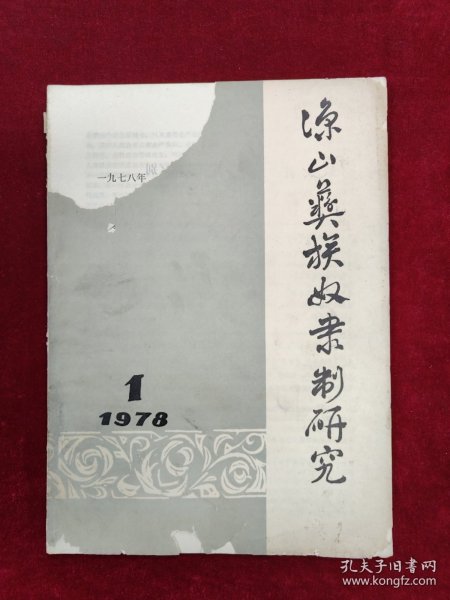 凉山彝族奴隶制研究
一九七八年
1
1978
孔夫子旧书网
www.kongfz.com